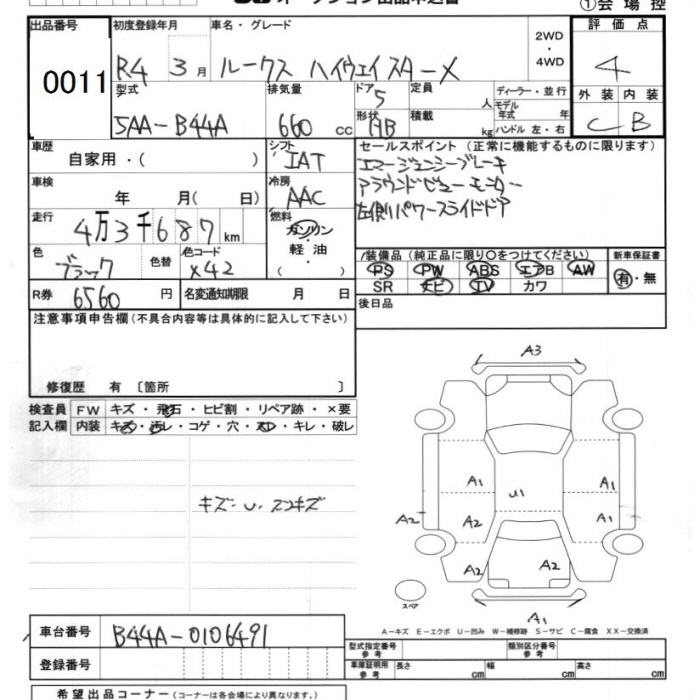 オークション出品申込書
①会場控
出品番号 0011
初度登録年月 R4 3月
車名・グレード ルークス ハイウェイスターX
2WD・4WD
評価点 4
型式 5AA-B44A
排気量 660 cc
ドア 5
形状 HB
定員 人
積載 kg
ディーラー・並行
モデル年式 年
ハンドル 左・右
外装 C 内装 B
車歴 自家用・( )
シフト IAT
セールスポイント (正常に機能するものに限ります)
エマージェンシーブレーキ
アラウンドビューモニター
左側パワースライドドア
車検 年 月( 日)
冷房 AAC
走行 4万3千687km
燃料 ガソリン・軽油・( )
色 ブラック 色替
色コード X42
装備品 (純正品に限り○をつけてください)
新車保証書
PS PW ABS エアB AW
SR ナビ TV カワ
有・無
R券 6560円
名変通知期限 月 日
後日品
注意事項申告欄(不具合内容等は具体的に記入して下さい)
修復歴 有 〔箇所 〕
検査員記入欄
FW キズ・飛石・ヒビ割・リペア跡・×要
内装 キズ・汚レ・コゲ・穴・スレ・キレ・破レ
キズ・U・スリキズ
A3
A1
A1
A2
A2
U1
A1
A1
A2
A2
A2
スペア
A1
A-キズ E-エクボ U-凹み W-補修跡 S-サビ C-腐食 XX-交換済
車台番号 B44A-0106491
登録番号
型式指定番号 参考
類別区分番号 参考
車庫証明用 参考 長さ cm 幅 cm 高さ cm
希望出品コーナー(コーナーは各会場により異なります。)